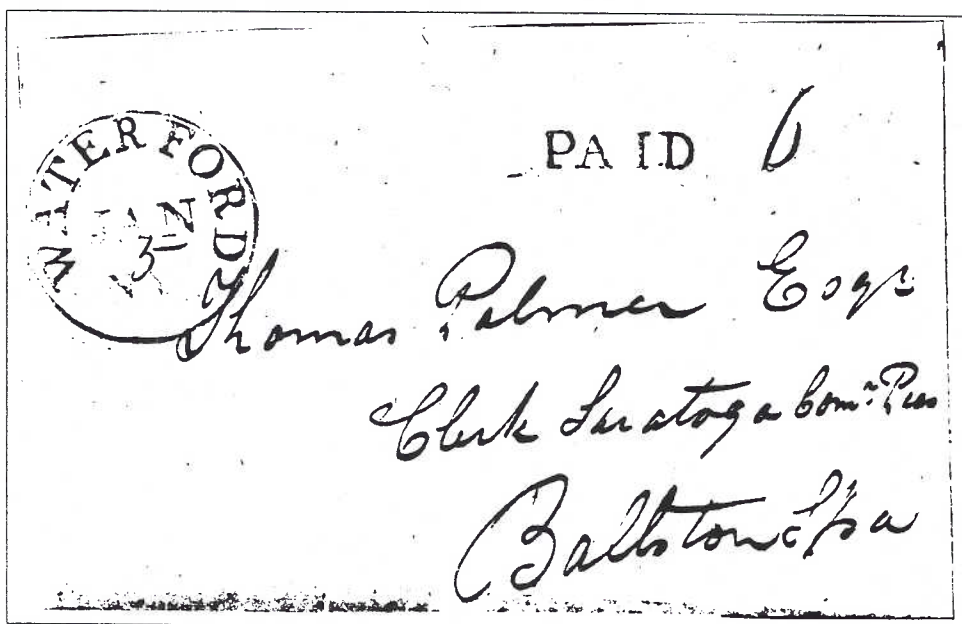 WATERFORD
JAN
3
PAID 6
Thomas Palmer Esqr
Clerk Saratoga Com.n Pleas
Ballston Spa